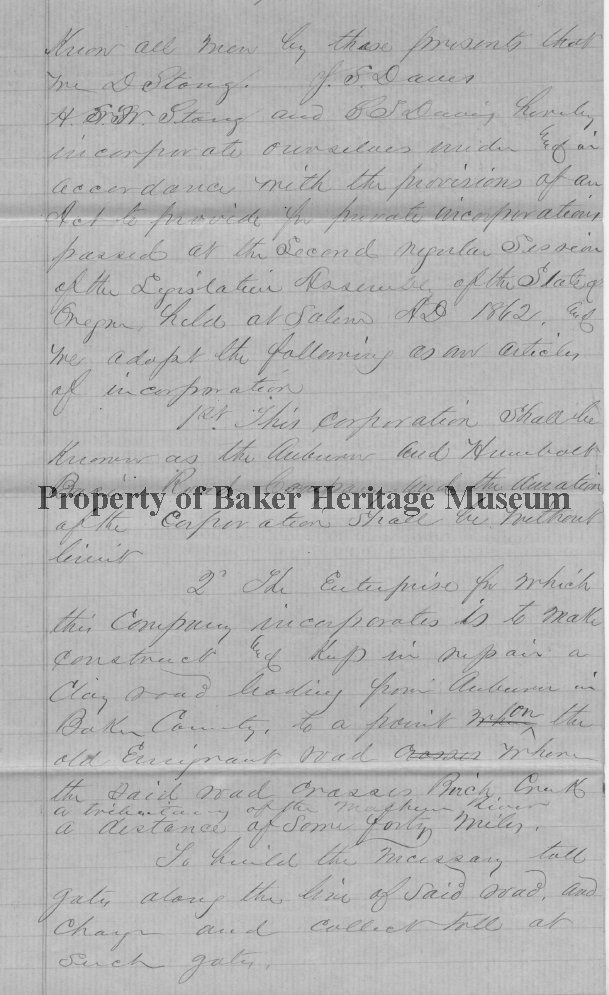 Know all men by these presents that
we D Stong. J. S. Daves
H. S. W. Stong and B S Davis hereby
incorporate ourselves under & in
accordance with the provisions of an
Act to provide for private incorporations
passed at the Second regular Session
of the Legislative Assembly of the State of
Oregon, held at Salem AD 1862, and
we adopt the following as our articles
of incorporation
1st This corporation Shall be
Known as the Auburn and Humbolt
Basin Road Company and the duration
Property of Baker Heritage Museum
of the Corporation Shall be without
limit
2d The Enterprise for which
this Company incorporates is to make
construct & Keep in repair a
Clay road leading from Auburn in
Baker County, to a point on the
old Emigrant road crosses where
the said road crosses Birch Creek
a tributary of the River
a distance of some forty miles.
To build the necessary toll
gates along the line of said road, and
Charge and collect toll at
such gates.